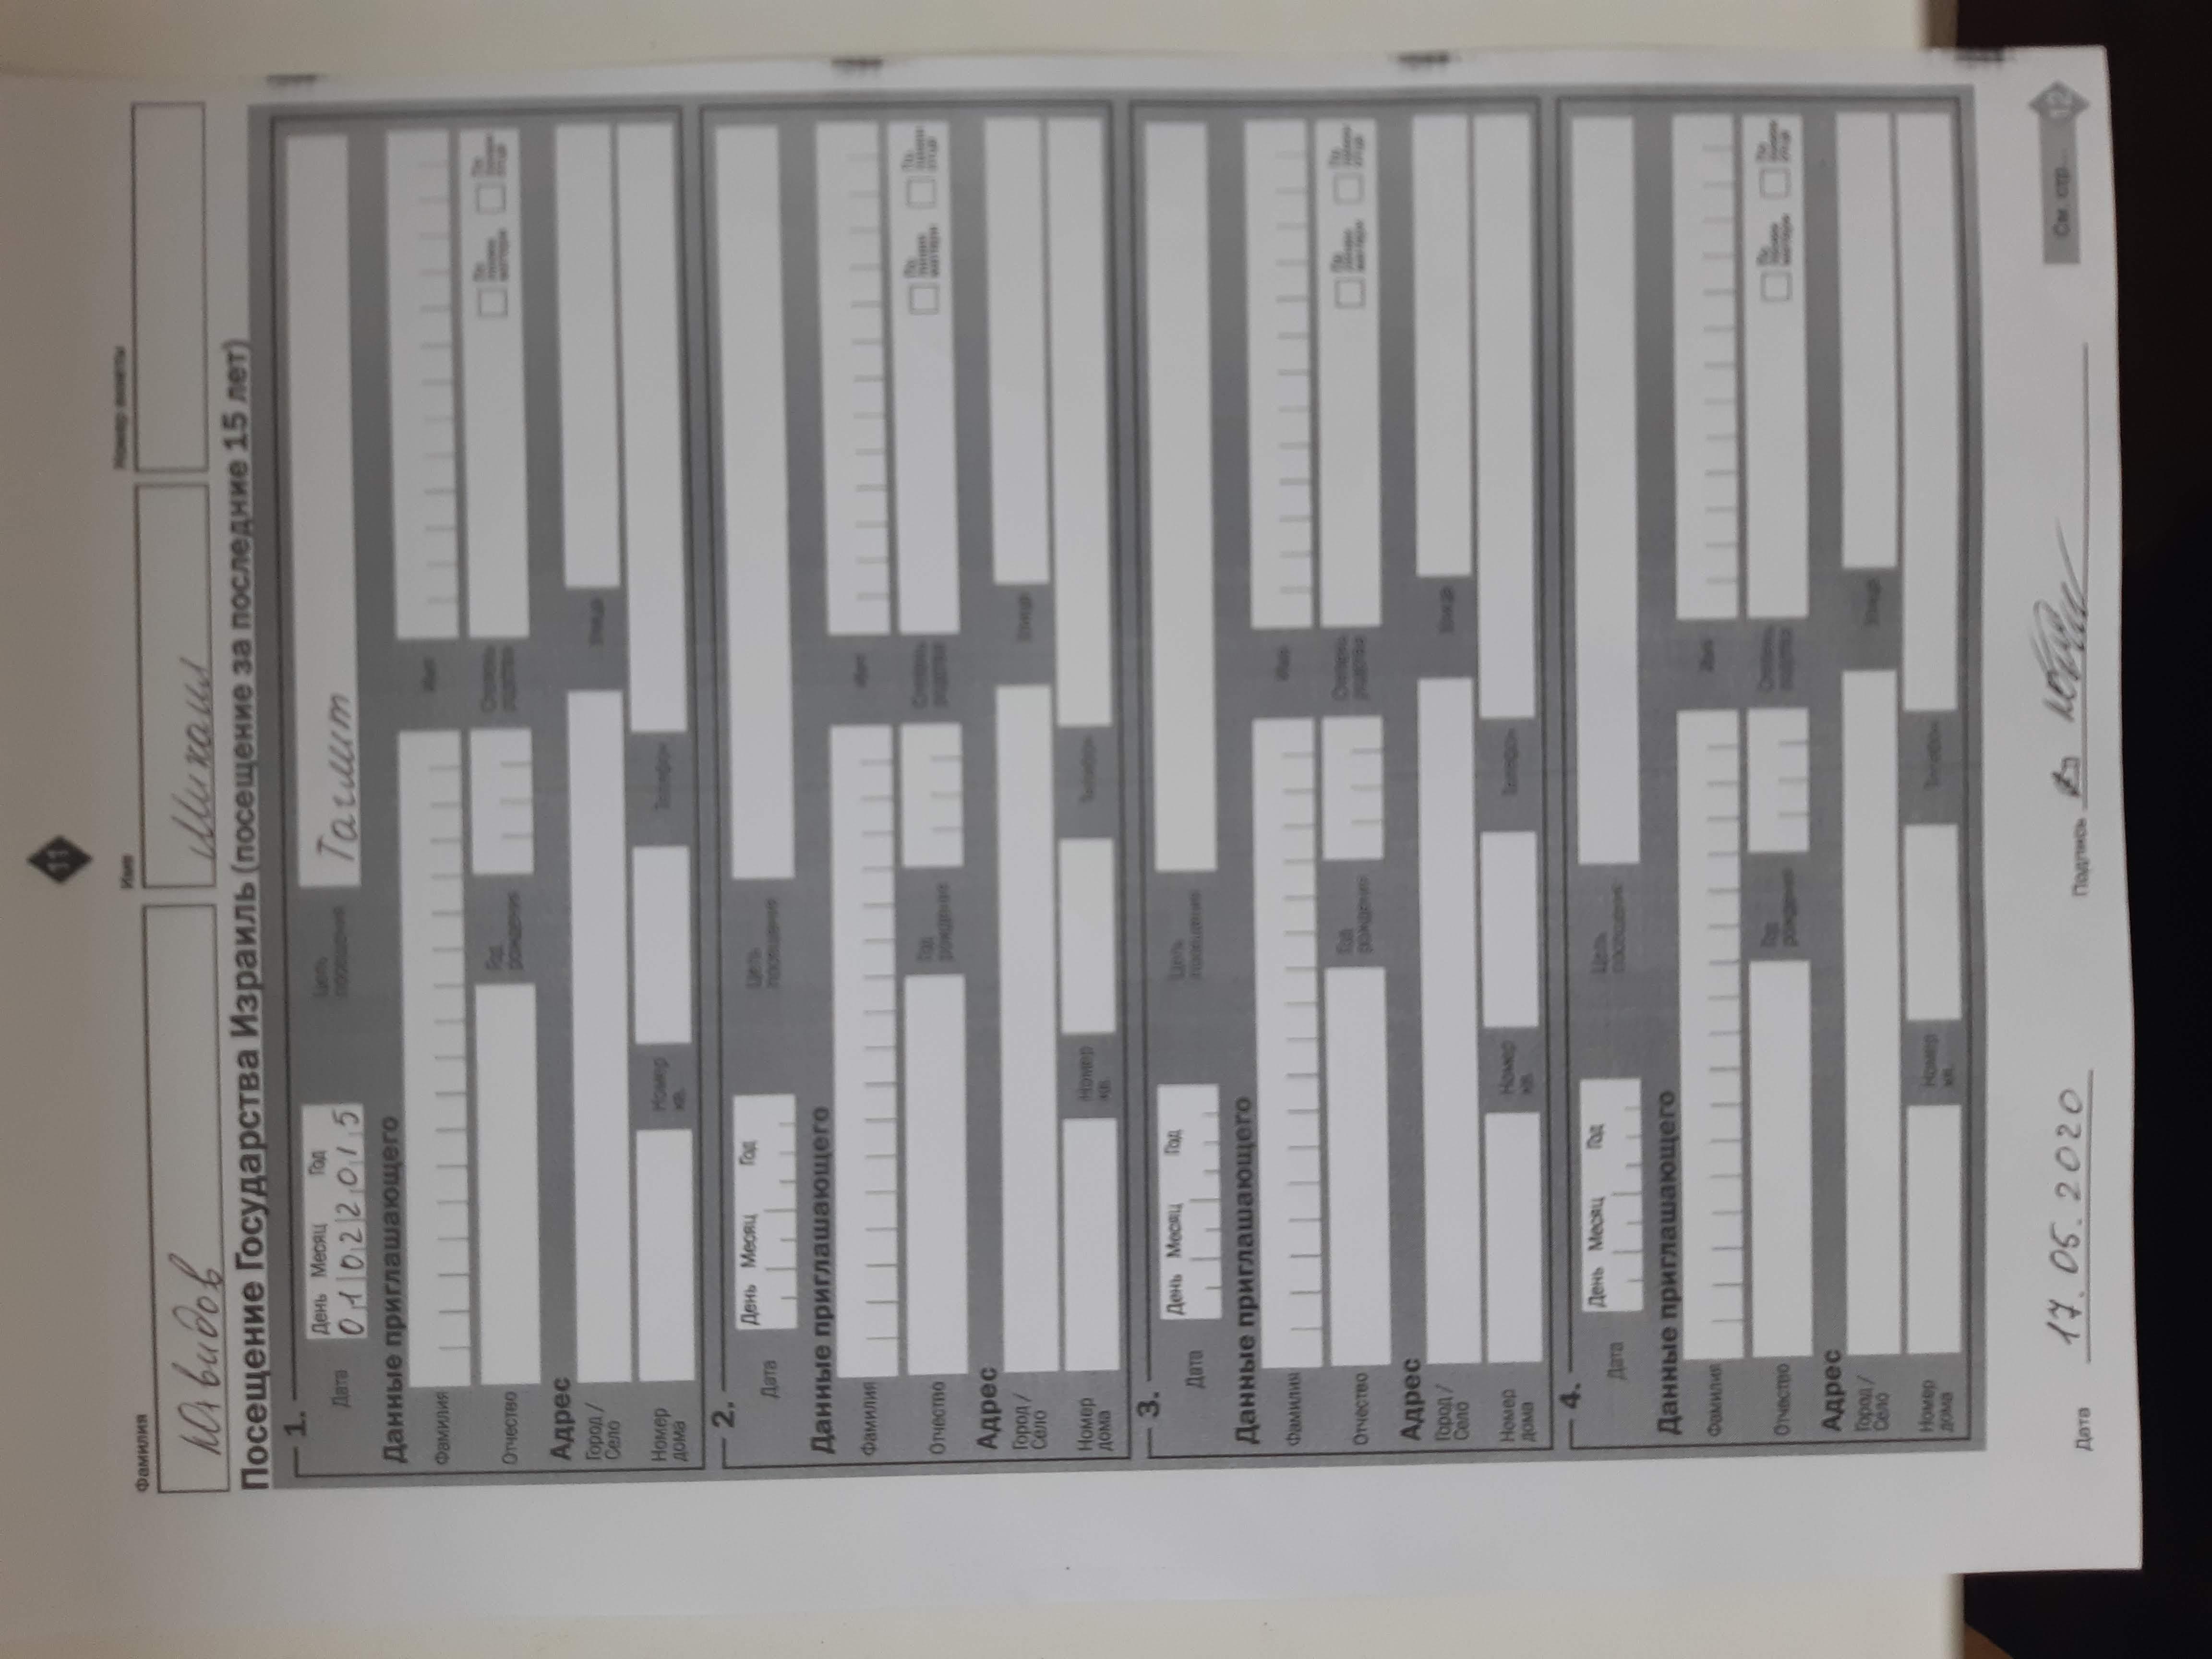 11
Фамилия Имя Номер анкеты
Юавидов Михаил
Посещение Государства Израиль (посещение за последние 15 лет)
1.
День Месяц Год
Дата 01022015 Цель посещения Таглит
Данные приглашающего
Фамилия Имя
Отчество Год рождения Степень родства По линии матери По линии отца
Адрес
Город / Село Улица
Номер дома Номер кв. Телефон
2.
День Месяц Год
Дата Цель посещения
Данные приглашающего
Фамилия Имя
Отчество Год рождения Степень родства По линии матери По линии отца
Адрес
Город / Село Улица
Номер дома Номер кв. Телефон
3.
День Месяц Год
Дата Цель посещения
Данные приглашающего
Фамилия Имя
Отчество Год рождения Степень родства По линии матери По линии отца
Адрес
Город / Село Улица
Номер дома Номер кв. Телефон
4.
День Месяц Год
Дата Цель посещения
Данные приглашающего
Фамилия Имя
Отчество Год рождения Степень родства По линии матери По линии отца
Адрес
Город / Село Улица
Номер дома Номер кв. Телефон
Дата 17.05.2020 Подпись См. стр... 12